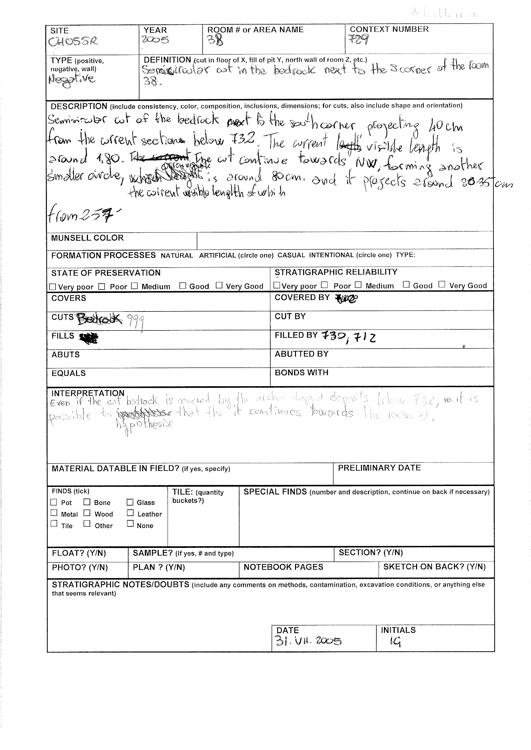 SITE
CHOSSR
YEAR
2005
ROOM # or AREA NAME
38
CONTEXT NUMBER
729
TYPE (positive, negative, wall)
Negative
DEFINITION (cut in floor of X, fill of pit Y, north wall of room Z, etc.)
Semicircular cut in the bedrock next to the S corner of the room
38.
DESCRIPTION (include consistency, color, composition, inclusions, dimensions; for cuts, also include shape and orientation)
Semicircular cut of the bedrock next to the south corner projecting 40cm
from the current section below 732. The current visible length is
around 1,80. The cut continue towards NW, forming another
smaller circle, is around 80cm. and it projects around 30-35cm
the current visible length of which
from 257
MUNSELL COLOR
FORMATION PROCESSES NATURAL ARTIFICIAL (circle one) CASUAL INTENTIONAL (circle one) TYPE:
STATE OF PRESERVATION
☐ Very poor ☐ Poor ☐ Medium ☐ Good ☐ Very Good
STRATIGRAPHIC RELIABILITY
☐ Very poor ☐ Poor ☐ Medium ☐ Good ☐ Very Good
COVERS
COVERED BY
CUTS Bedrock 999
CUT BY
FILLS
FILLED BY 732, 712
ABUTS
ABUTTED BY
EQUALS
BONDS WITH
INTERPRETATION
Even if the cut bedrock is covered by the deposits below 732, it is
possible to that the it continues towards the room
hypothesise
MATERIAL DATABLE IN FIELD? (if yes, specify)
PRELIMINARY DATE
FINDS (tick)
☐ Pot ☐ Bone ☐ Glass
☐ Metal ☐ Wood ☐ Leather
☐ Tile ☐ Other ☐ None
TILE: (quantity buckets?)
SPECIAL FINDS (number and description, continue on back if necessary)
FLOAT? (Y/N)
SAMPLE? (if yes, # and type)
SECTION? (Y/N)
PHOTO? (Y/N)
PLAN ? (Y/N)
NOTEBOOK PAGES
SKETCH ON BACK? (Y/N)
STRATIGRAPHIC NOTES/DOUBTS (include any comments on methods, contamination, excavation conditions, or anything else
that seems relevant)
DATE
31. VII. 2005
INITIALS
IG